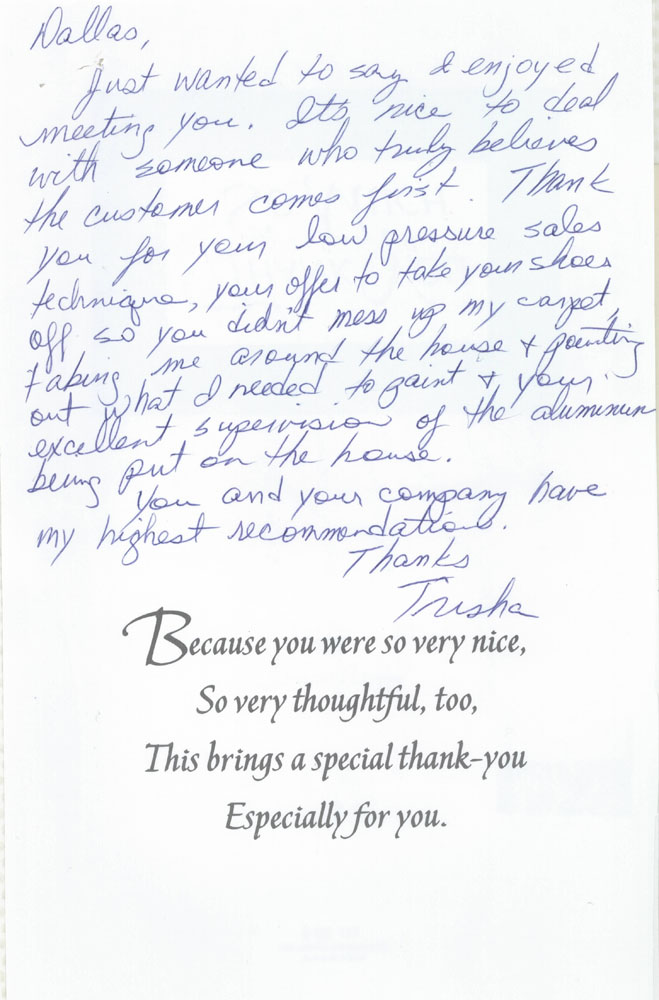 Dallas,
Just wanted to say I enjoyed
meeting you. Its nice to deal
with someone who truly believes
the customer comes first. Thank
you for your low pressure sales
technique, your offer to take your shoes
off so you didn't mess up my carpet,
taking me around the house + pointing
out what I needed to paint + your
excellent supervision of the aluminum
being put on the house.
You and your company have
my highest recommendations.
Thanks
Trisha
Because you were so very nice,
So very thoughtful, too,
This brings a special thank-you
Especially for you.